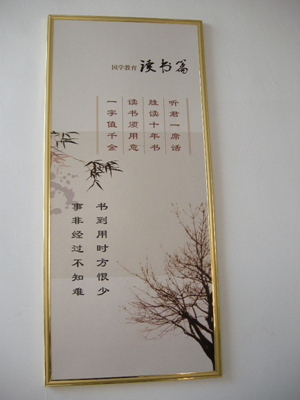 国学教育 读书篇
听君一席话
胜读十年书
读书须用意
一字值千金
书到用时方恨少
事非经过不知难